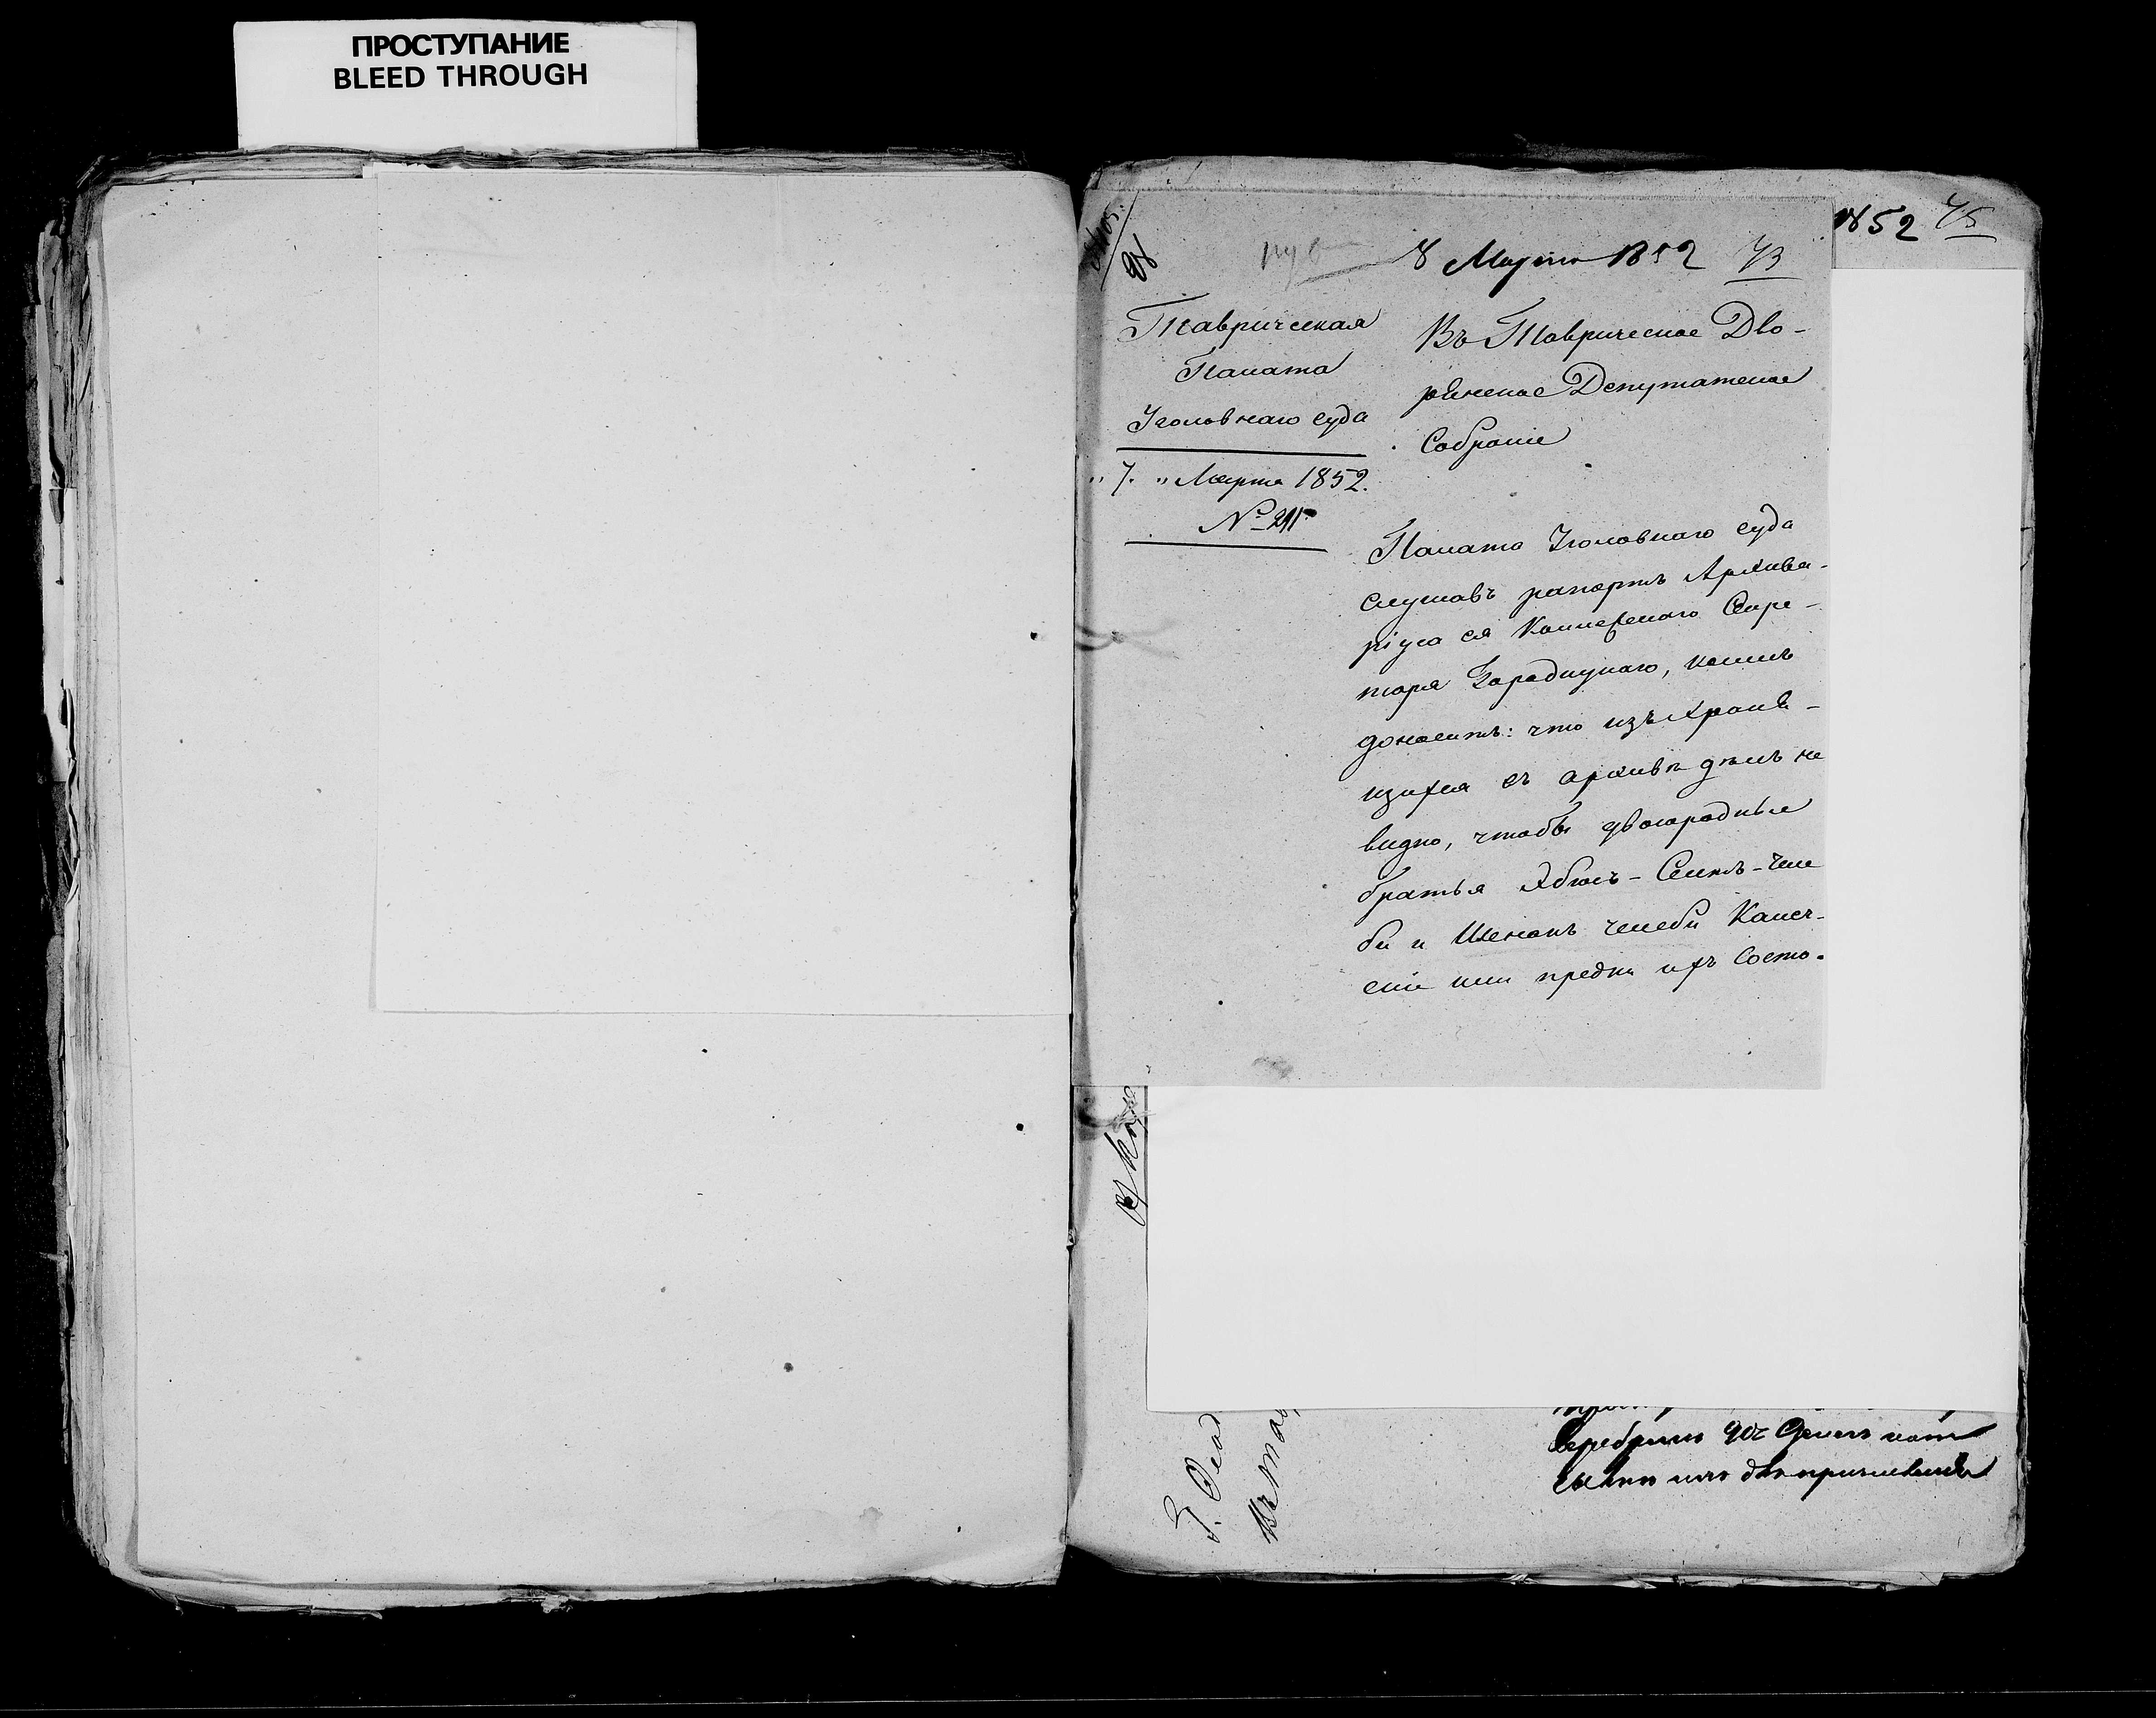 ПРОСТУПАНИЕ
BLEED THROUGH
1852 75
8 Марта 1852 73
Таврическая
Палата
Уголовнаго суда
"7." Марта 1852.
№ 211
Въ Таврическое Дво-
рянское Депутатское
Собраніе
Палата Уголовнаго суда
слушавъ рапортъ Архива-
ріуса ея Коллежскаго Секре-
таря Городецкаго, коимъ
доноситъ: что изъ хране-
щихся въ архивѣ дѣлъ не
видно, чтобы двоюродные
братья Абдюлъ-Сеитъ-Челе
би и Шенанъ челеби Капс-
сіи или предки ихъ Состо-
серебромъ